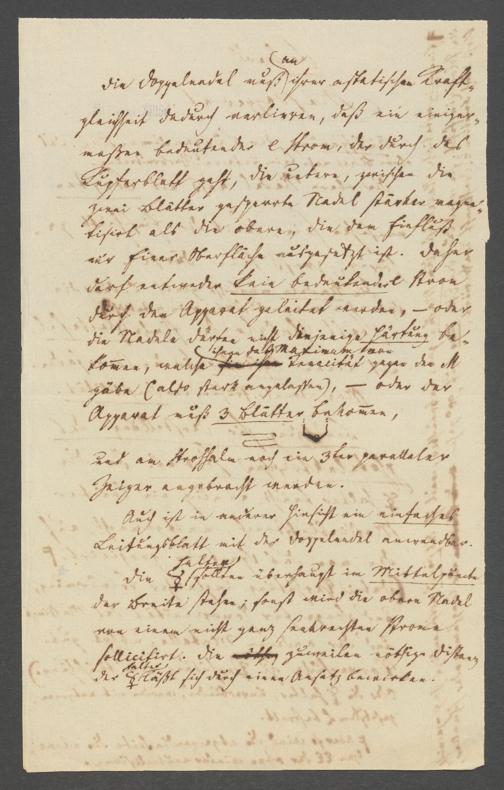 an
Die Doppelnadel muß ihrer astatischen Kraft-
gleichheit dadurch verlieren, daß ein einiger-
maßen bedeutender e Strom, der durch das
Kupferblatt geht, die untere, zwischen die
zwei Blätter gesperrte Nadel stärker magne-
tisirt als die obere, die dem Einfluß
nur Einer Oberfläche ausgesetzt ist. Daher
darf entweder kein bedeutender e Strom
durch den Apparat geleitet werden, – oder
die Nadeln dürfen nicht diejenige Härtung be-
kommen, welche ihnen das Maximum von
Tenacität gegen den M
gäbe (also stark angelassen), – oder der
Apparat muß 3 Blätter bekommen,
und am Strohhalm noch ein 3ter paralleler
Zeiger angebracht werden.
Auch ist in anderer Hinsicht ein einfaches
Leitungsblatt mit der Doppelnadel anwendbar.
Die halter sollten überhaupt im Mittelpuncte
der Breite stehen; sonst wird die obere Nadel
von einem nicht ganz senkrechten Strome
sollicitirt. Die zuweilen nöthige Distanz
der halter läßt sich durch einen Ansatz bewirken.